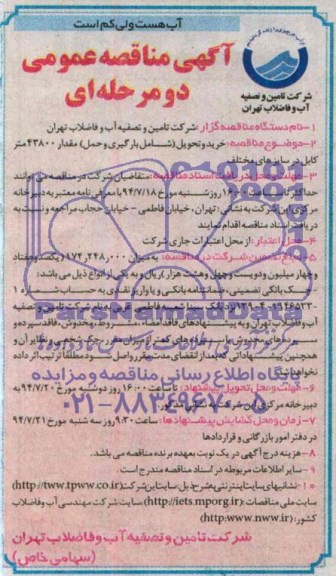 آب هست ولی کم است
آگهی مناقصه عمومی
دو مرحله ای
شرکت تامین و تصفیه
آب و فاضلاب تهران
۱- نام دستگاه مناقصه گزار: شرکت تامین و تصفیه آب و فاضلاب تهران
۲- موضوع مناقصه: خرید و تحویل (شامل بارگیری و حمل) مقدار ۴۳۸۰۰ متر
کابل در سایز های مختلف
۳- مهلت و محل دریافت اسناد مناقصه: متقاضیان شرکت در مناقصه می توانند
حداکثر تا ساعت ۱۶:۰۰ روز شنبه مورخ ۹۴/۷/۱۸ با معرفی نامه معتبر به دبیرخانه
مرکزی این شرکت به نشانی: تهران، خیابان فاطمی - خیابان حجاب مراجعه و نسبت به
دریافت اسناد مناقصه اقدام نمایند
۴- محل اعتبار: از محل اعتبارات جاری شرکت
شرکت در مناقصه: به میزان ۱۷۴,۲۴۸,۰۰۰ (یکصد و هفتاد
و چهار میلیون و دویست و چهل و هشت هزار) ریال و به یکی از انواع ذیل می باشد:
بانکی تضمینی، ضمانتنامه بانکی و یا واریز نقدی به حساب شماره
شرکت تامین و تصفیه
آب و فاضلاب تهران و به پیشنهادهای فاقد امضاء، مشروط، مخدوش، فاقد سپرده و
و نظایر آن و
همچنین پیشنهاداتی که بعد از انقضای مدت مقرر واصل شود مطلقا ترتیب اثر داده
نخواهد شد
پایگاه اطلاع رسانی مناقصه و مزایده
۶- مهلت و محل تحویل پیشنهاد: تا ساعت ۱۶:۰۰ روز دوشنبه مورخ ۹۴/۷/۲۰ به
دبیرخانه مرکزی این شرکت به نشانی مذکور
۰۲۱-۸۸۳۴۹۶۷۰-۵
۷- زمان و محل گشایش پیشنهادها: ساعت ۹:۳۰ روز سه شنبه مورخ ۹۴/۷/۲۱
در دفتر امور بازرگانی و قراردادها
۸- هزینه درج آگهی در یک نوبت بعهده برنده مناقصه می باشد.
۹- سایر اطلاعات مربوطه در اسناد مناقصه مندرج است.
۱۰- نشانیهای سایت اینترنتی بشرح ذیل: سایت این شرکت (http://tww.tpww.co.ir)
سایت ملی مناقصات: (http://iets.mporg.ir) سایت شرکت مهندسی آب و فاضلاب
کشور: (http:www.nww.ir)
شرکت تامین و تصفیه آب و فاضلاب تهران
(سهامی خاص)
ParsNamadData